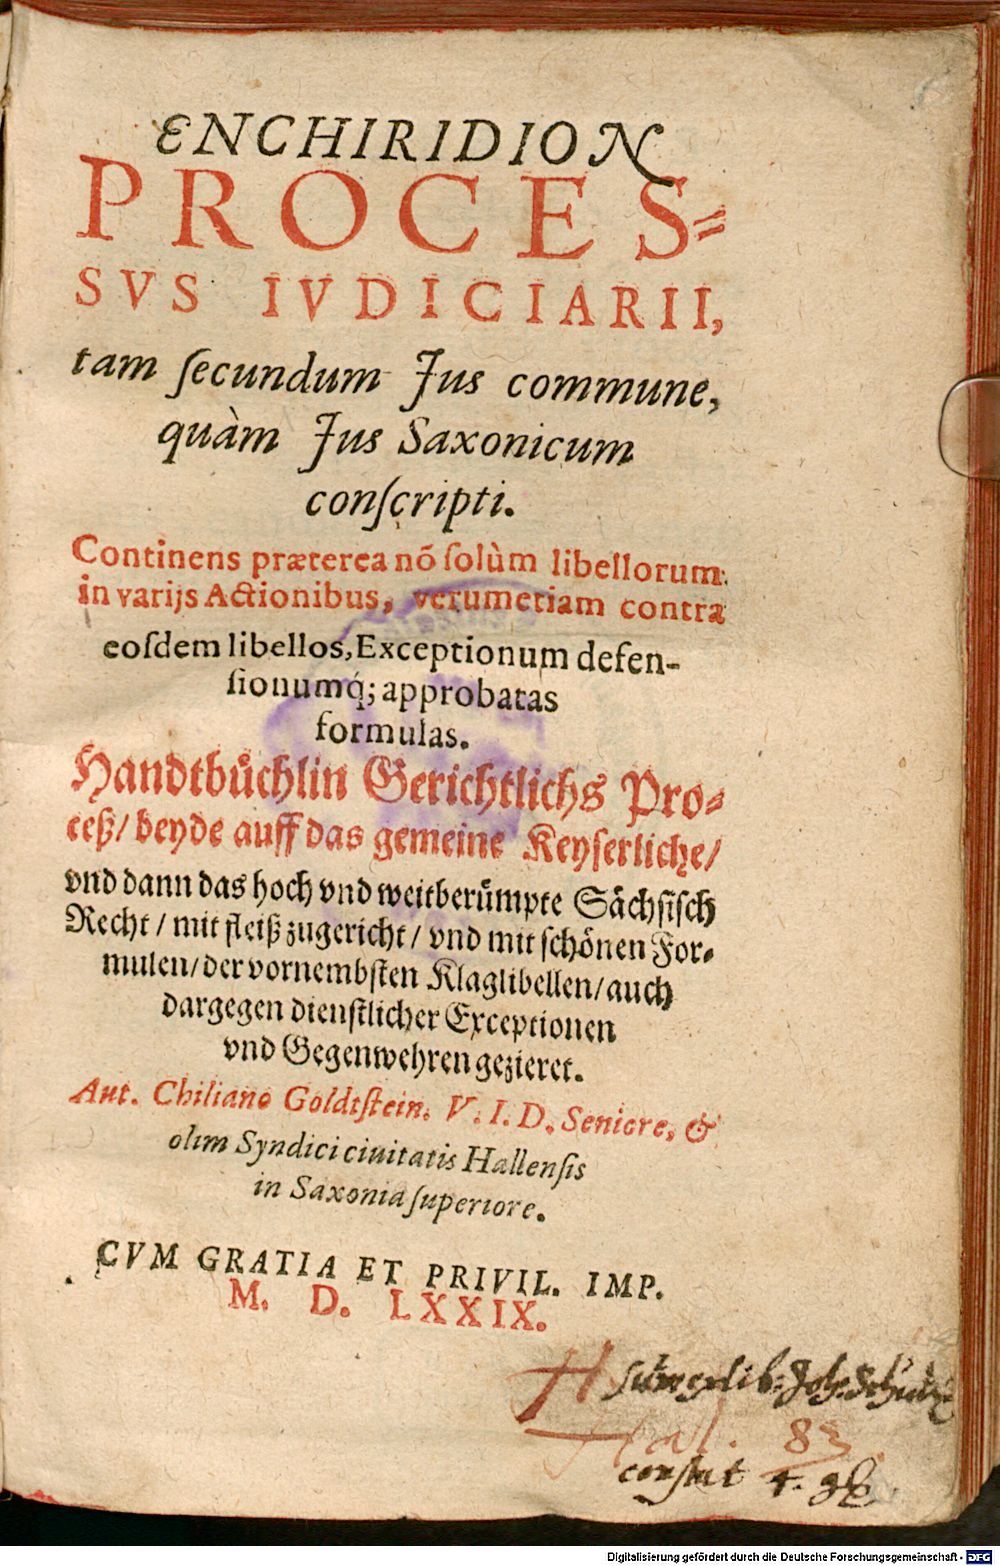 ENCHIRIDION
PROCES-
SVS IVDICIARII,
tam ſecundum Jus commune,
quàm Jus Saxonicum
conſcripti.
Continens præterea nõ ſolùm libellorum
in varijs Actionibus, verumetiam contra
eoſdem libellos, Exceptionum defen-
ſionumq́; approbatas
formulas.
Handtbuͤchlin Gerichtlichs Pro-
ceß/ beyde auff das gemeine Keyſerliche/
vnd dann das hoch vnd weitberuͤmpte Saͤchſiſch
Recht/ mit fleiß zugericht/ vnd mit ſchoͤnen For-
mulen/ der vornembſten Klaglibellen/ auch
dargegen dienſtlicher Exceptionen
vnd Gegenwehren gezieret.
Aut. Chiliano Goldtſtein. V. I. D. Seniore, &
olim Syndici ciuitatis Hallenſis
in Saxonia ſuperiore.
CVM GRATIA ET PRIVIL. IMP.
M. D. LXXIX.
H
83
conſtat
Digitalisierung gefördert durch die Deutsche Forschungsgemeinschaft - DFG